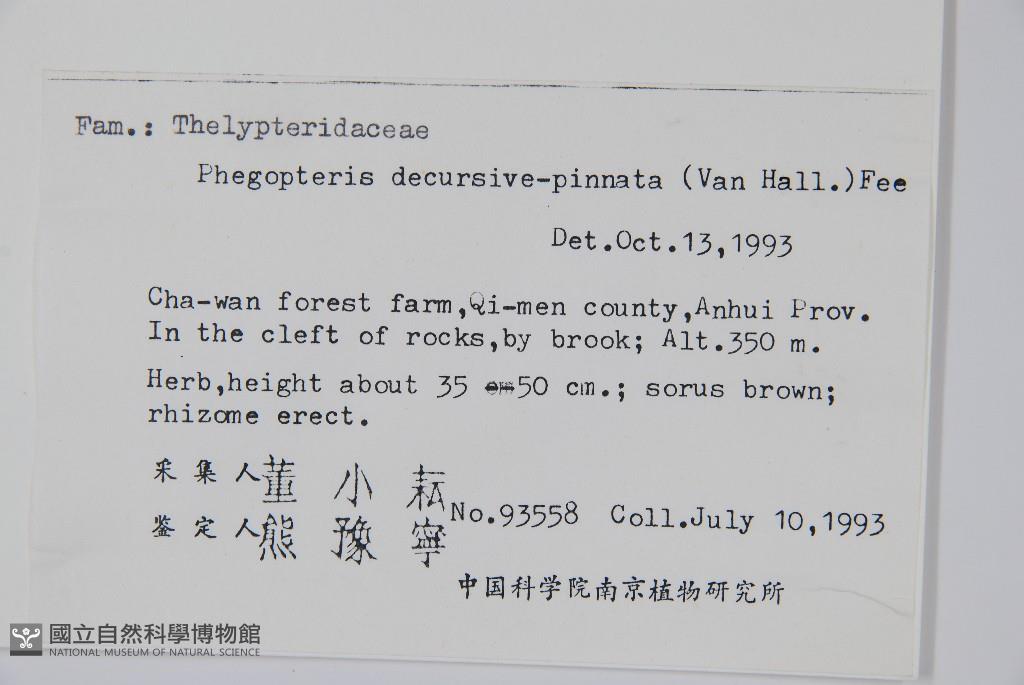 Fam.: Thelypteridaceae
Phegopteris decursive-pinnata (Van Hall.)Fee
Det.Oct.13,1993
Cha-wan forest farm,Qi-men county,Anhui Prov.
In the cleft of rocks,by brook; Alt.350 m.
Herb,height about 35 -50 cm.; sorus brown;
rhizome erect.
采集人 董小耘
鉴定人 熊豫寧 No.93558 Coll.July 10,1993
中国科学院南京植物研究所
國立自然科學博物館
NATIONAL MUSEUM OF NATURAL SCIENCE